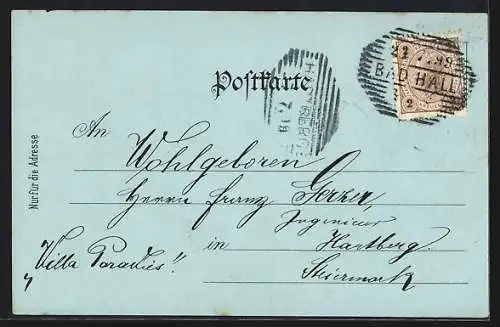 22 7 99
BAD HALL
2
Postkarte
HARTBERG
Nur für die Adresse
An
Wohlgeboren
Herrn Franz Gerzer,
Ingenieur
in Hartberg.
Villa Paradies!!
Steiermark